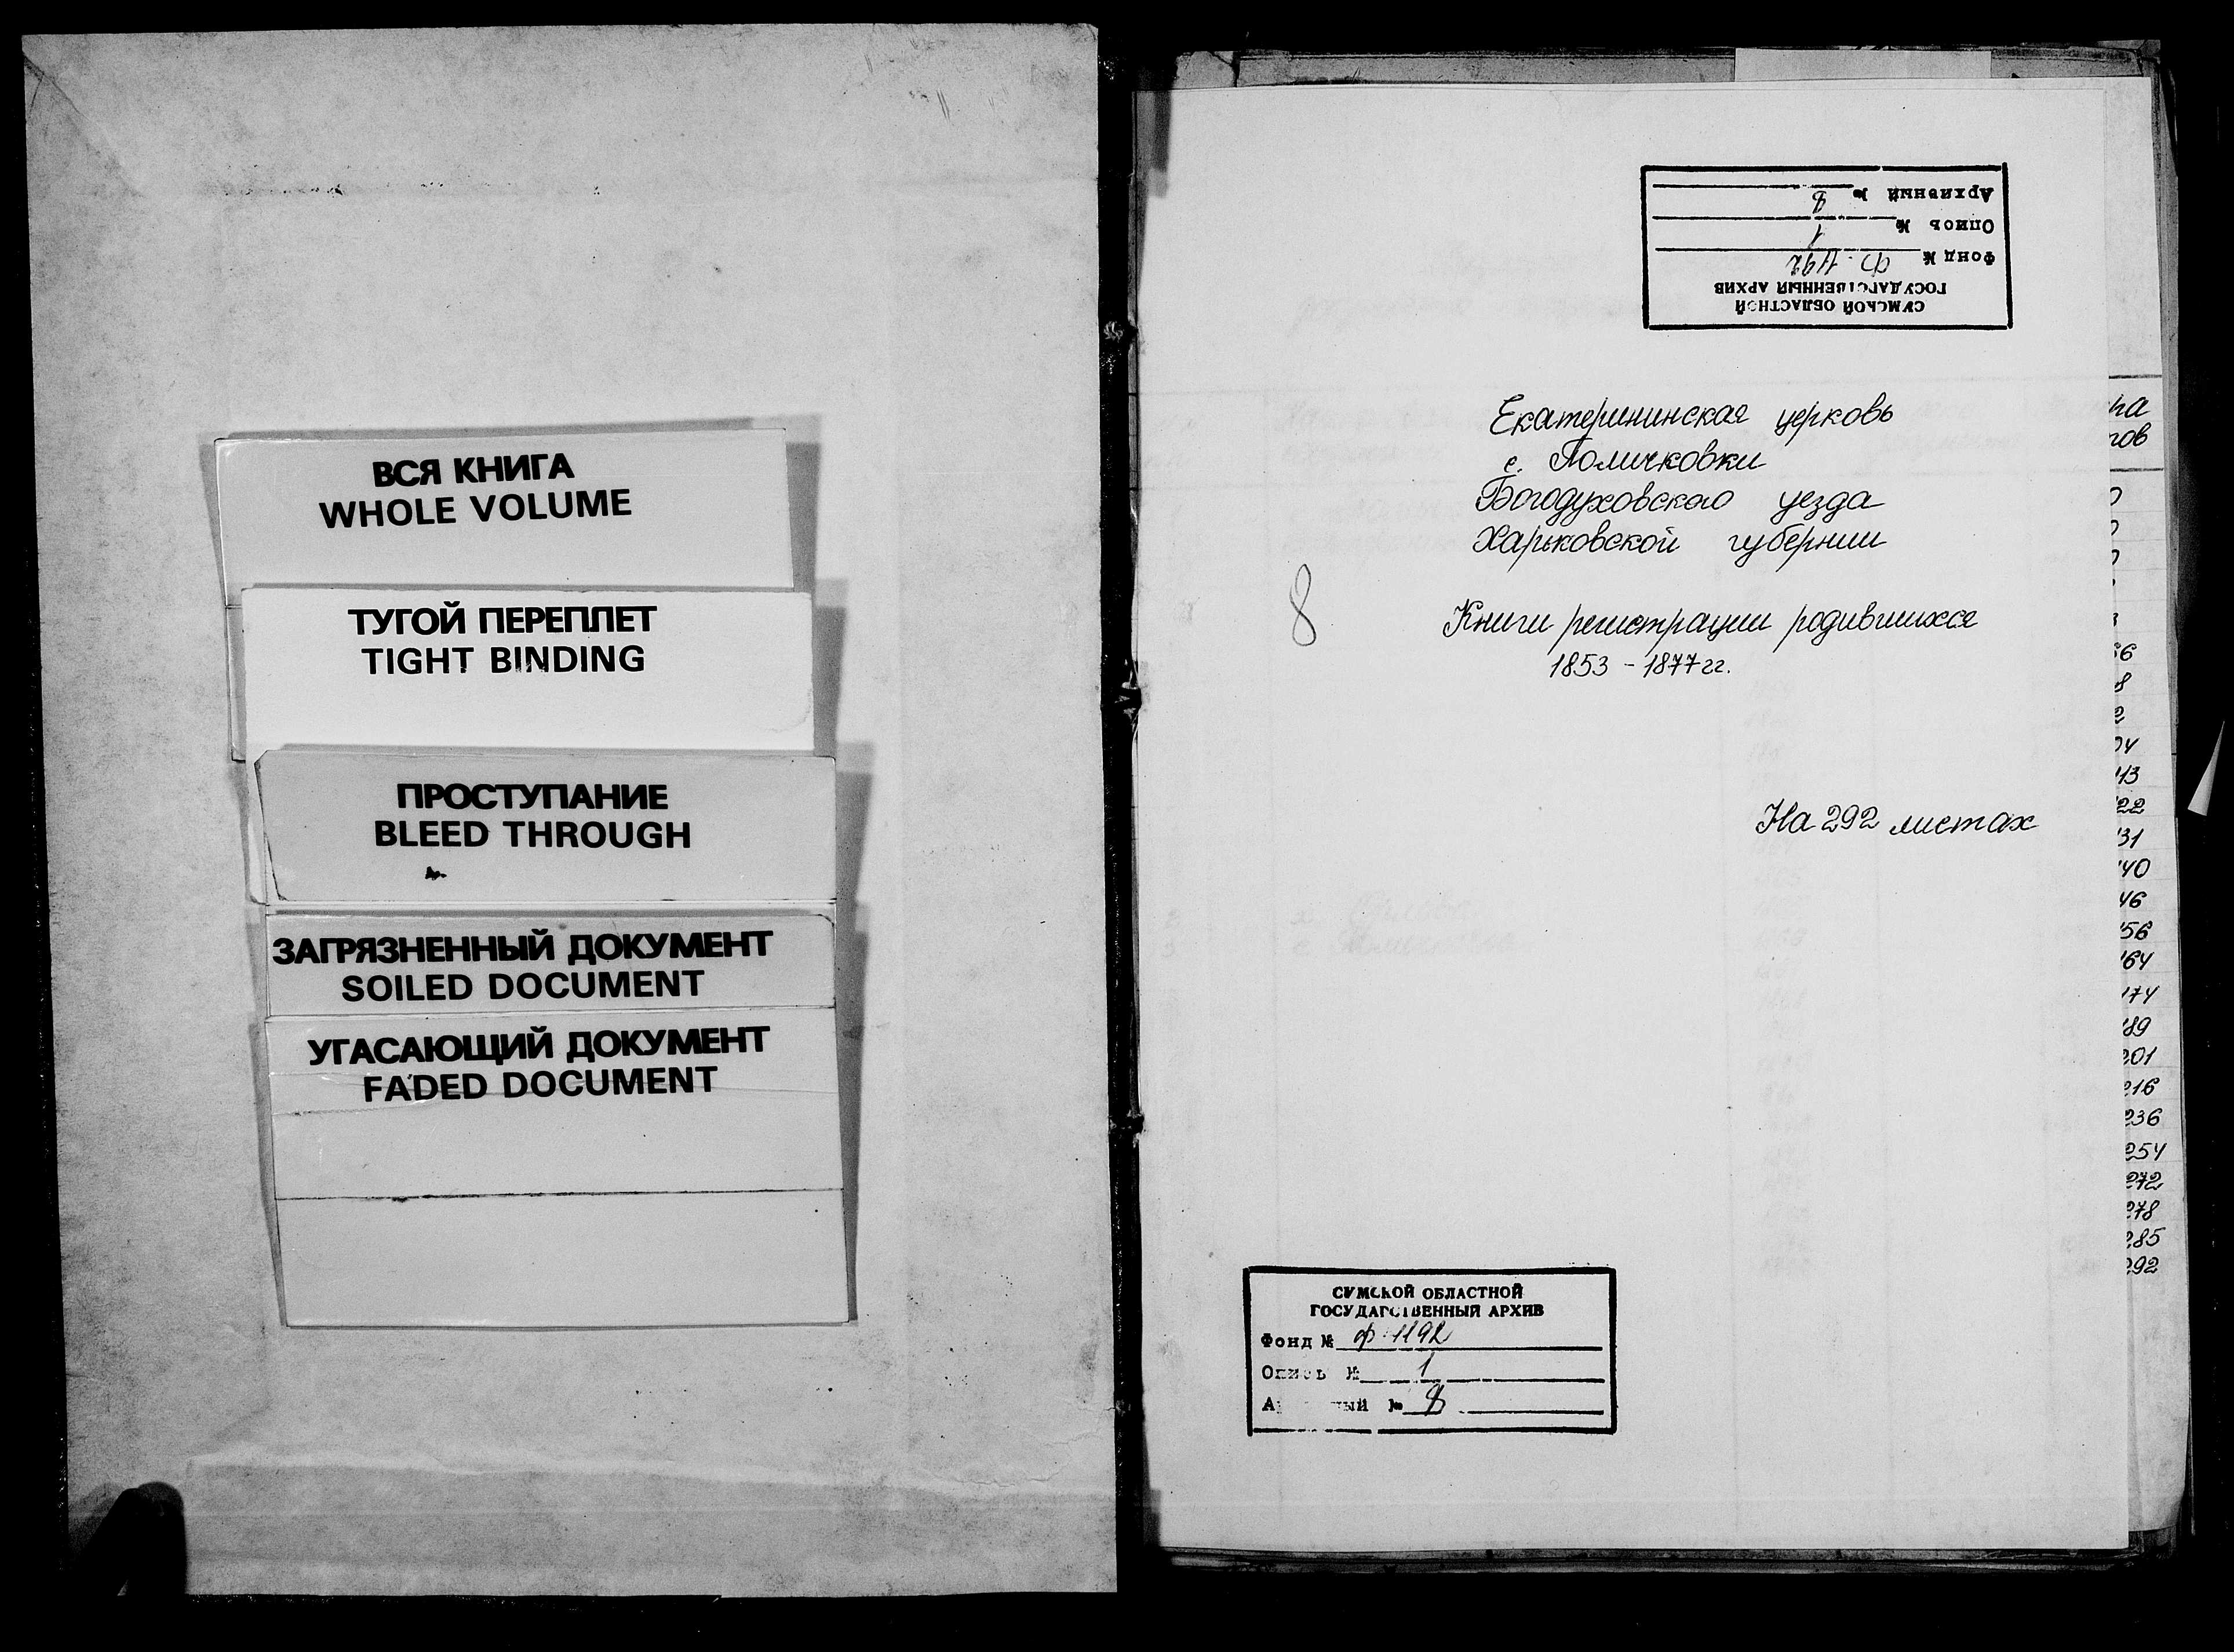 ВСЯ КНИГА
WHOLE VOLUME
ТУГОЙ ПЕРЕПЛЕТ
TIGHT BINDING
ПРОСТУПАНИЕ
BLEED THROUGH
ЗАГРЯЗНЕННЫЙ ДОКУМЕНТ
SOILED DOCUMENT
УГАСАЮЩИЙ ДОКУМЕНТ
FADED DOCUMENT
СУМСКОЙ ОБЛАСТНОЙ
ГОСУДАРСТВЕННЫЙ АРХИВ
Фонд № Ф-1192
Опись № 1
Архивный № 8
Екатерининская церковь
с. Поличковки
Богодуховского уезда
Харьковской губернии
8
Книги регистрации родившихся
1853 - 1877 гг.
На 292 листах
СУМСКОЙ ОБЛАСТНОЙ
ГОСУДАРСТВЕННЫЙ АРХИВ
Фонд № Ф-1192
Опись № 1
Архивный № 8
201
216
236
254
272
278
285
292